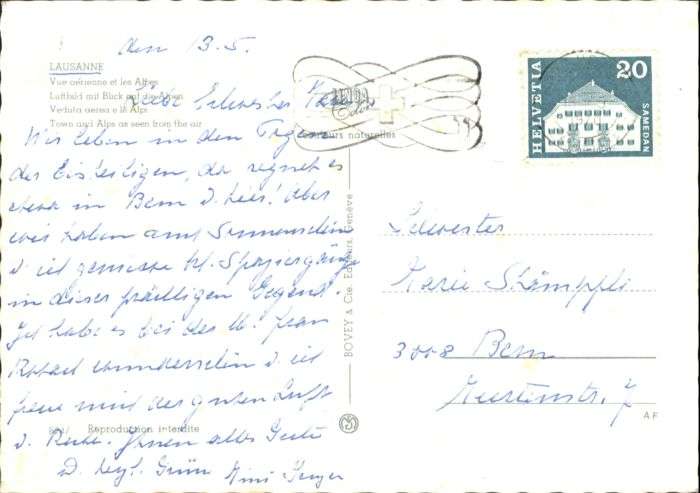 den 13.5.
LAUSANNE
Vue aérienne et les Alpes
Luftbild mit Blick auf die Alpen
Veduta aerea e le Alpi
Town and Alps as seen from the air
Liebe Schwester Marie
Wir leben in den Tagen
der Eisheiligen, da regnet es
etwas in Bern d. hier! Aber
wir haben auch Sonnenschein
d. ich geniesse kl. Spaziergänge
in dieser prächtigen Gegend.
Ich habe es bei der lb. Frau
wunderschön d. ich
freue mich der guten Luft
d. Ruhe. Ihnen alles Gute
d. hrzl. Grüsse Mimi
Reproduction interdite
BOVEY & Cie, Editeurs, Genève
couleurs naturelles
HELVETIA
20
SAMEDAN
Schwester
Marie Stämpfli
3008 Bern
7
AF